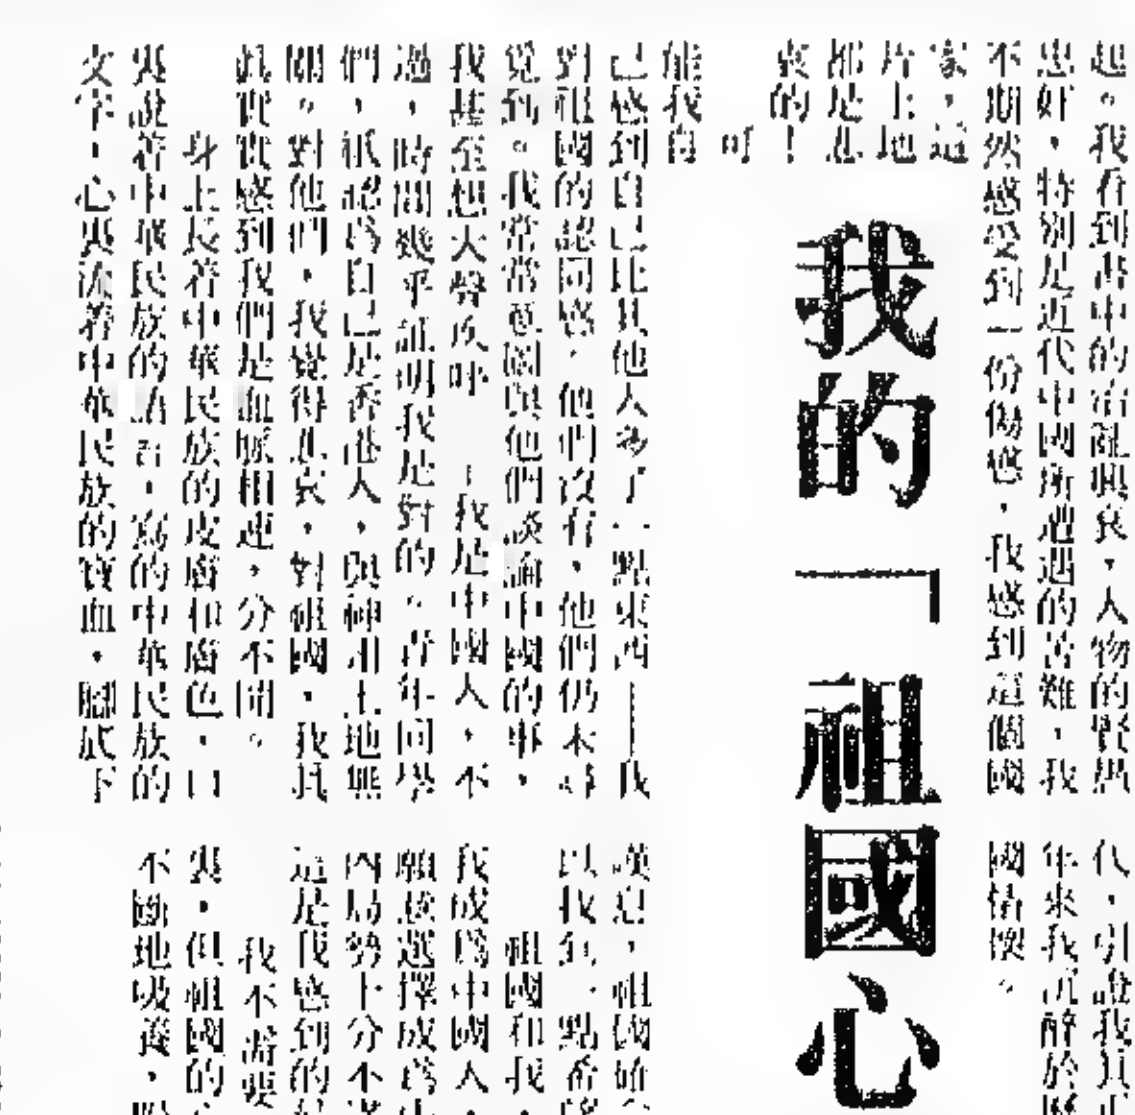 我的「祖國心
起。我看到書中的治亂興衰,人物的賢愚
忠奸,特別是近代中國所遭遇的苦難,我
不期然感受到一份傷感,我感到這個國
家,這
片土地
都是悲
哀的!
可
能我自
己感到自己比其他人多了一點東西——我
對祖國的認同感,他們沒有,他們仍未尋
覓到。我常常意圖與他們談論中國的事,
我甚至想大聲疾呼:我是中國人,不
過,時間幾乎証明我是對的。青年同學
們,祇認爲自己是香港人,與神州土地無
關。對他們,我覺得悲哀,對祖國,我真
真實實感到我們是血脈相連,分不開。
身上長着中華民族的皮膚和膚色,口
裏說着中華民族的語言,寫的中華民族的
文字,心裏流着中華民族的寶血,腳底下
代,引證我真正
年來我沉醉於
國情懷。
嘆息,祖國始
以我到一點希望
祖國和我,
我成爲中國人,
願意選擇成爲
內局勢十分不
這是我感到的
我不需要
裏,但祖國的
不斷地吸養,